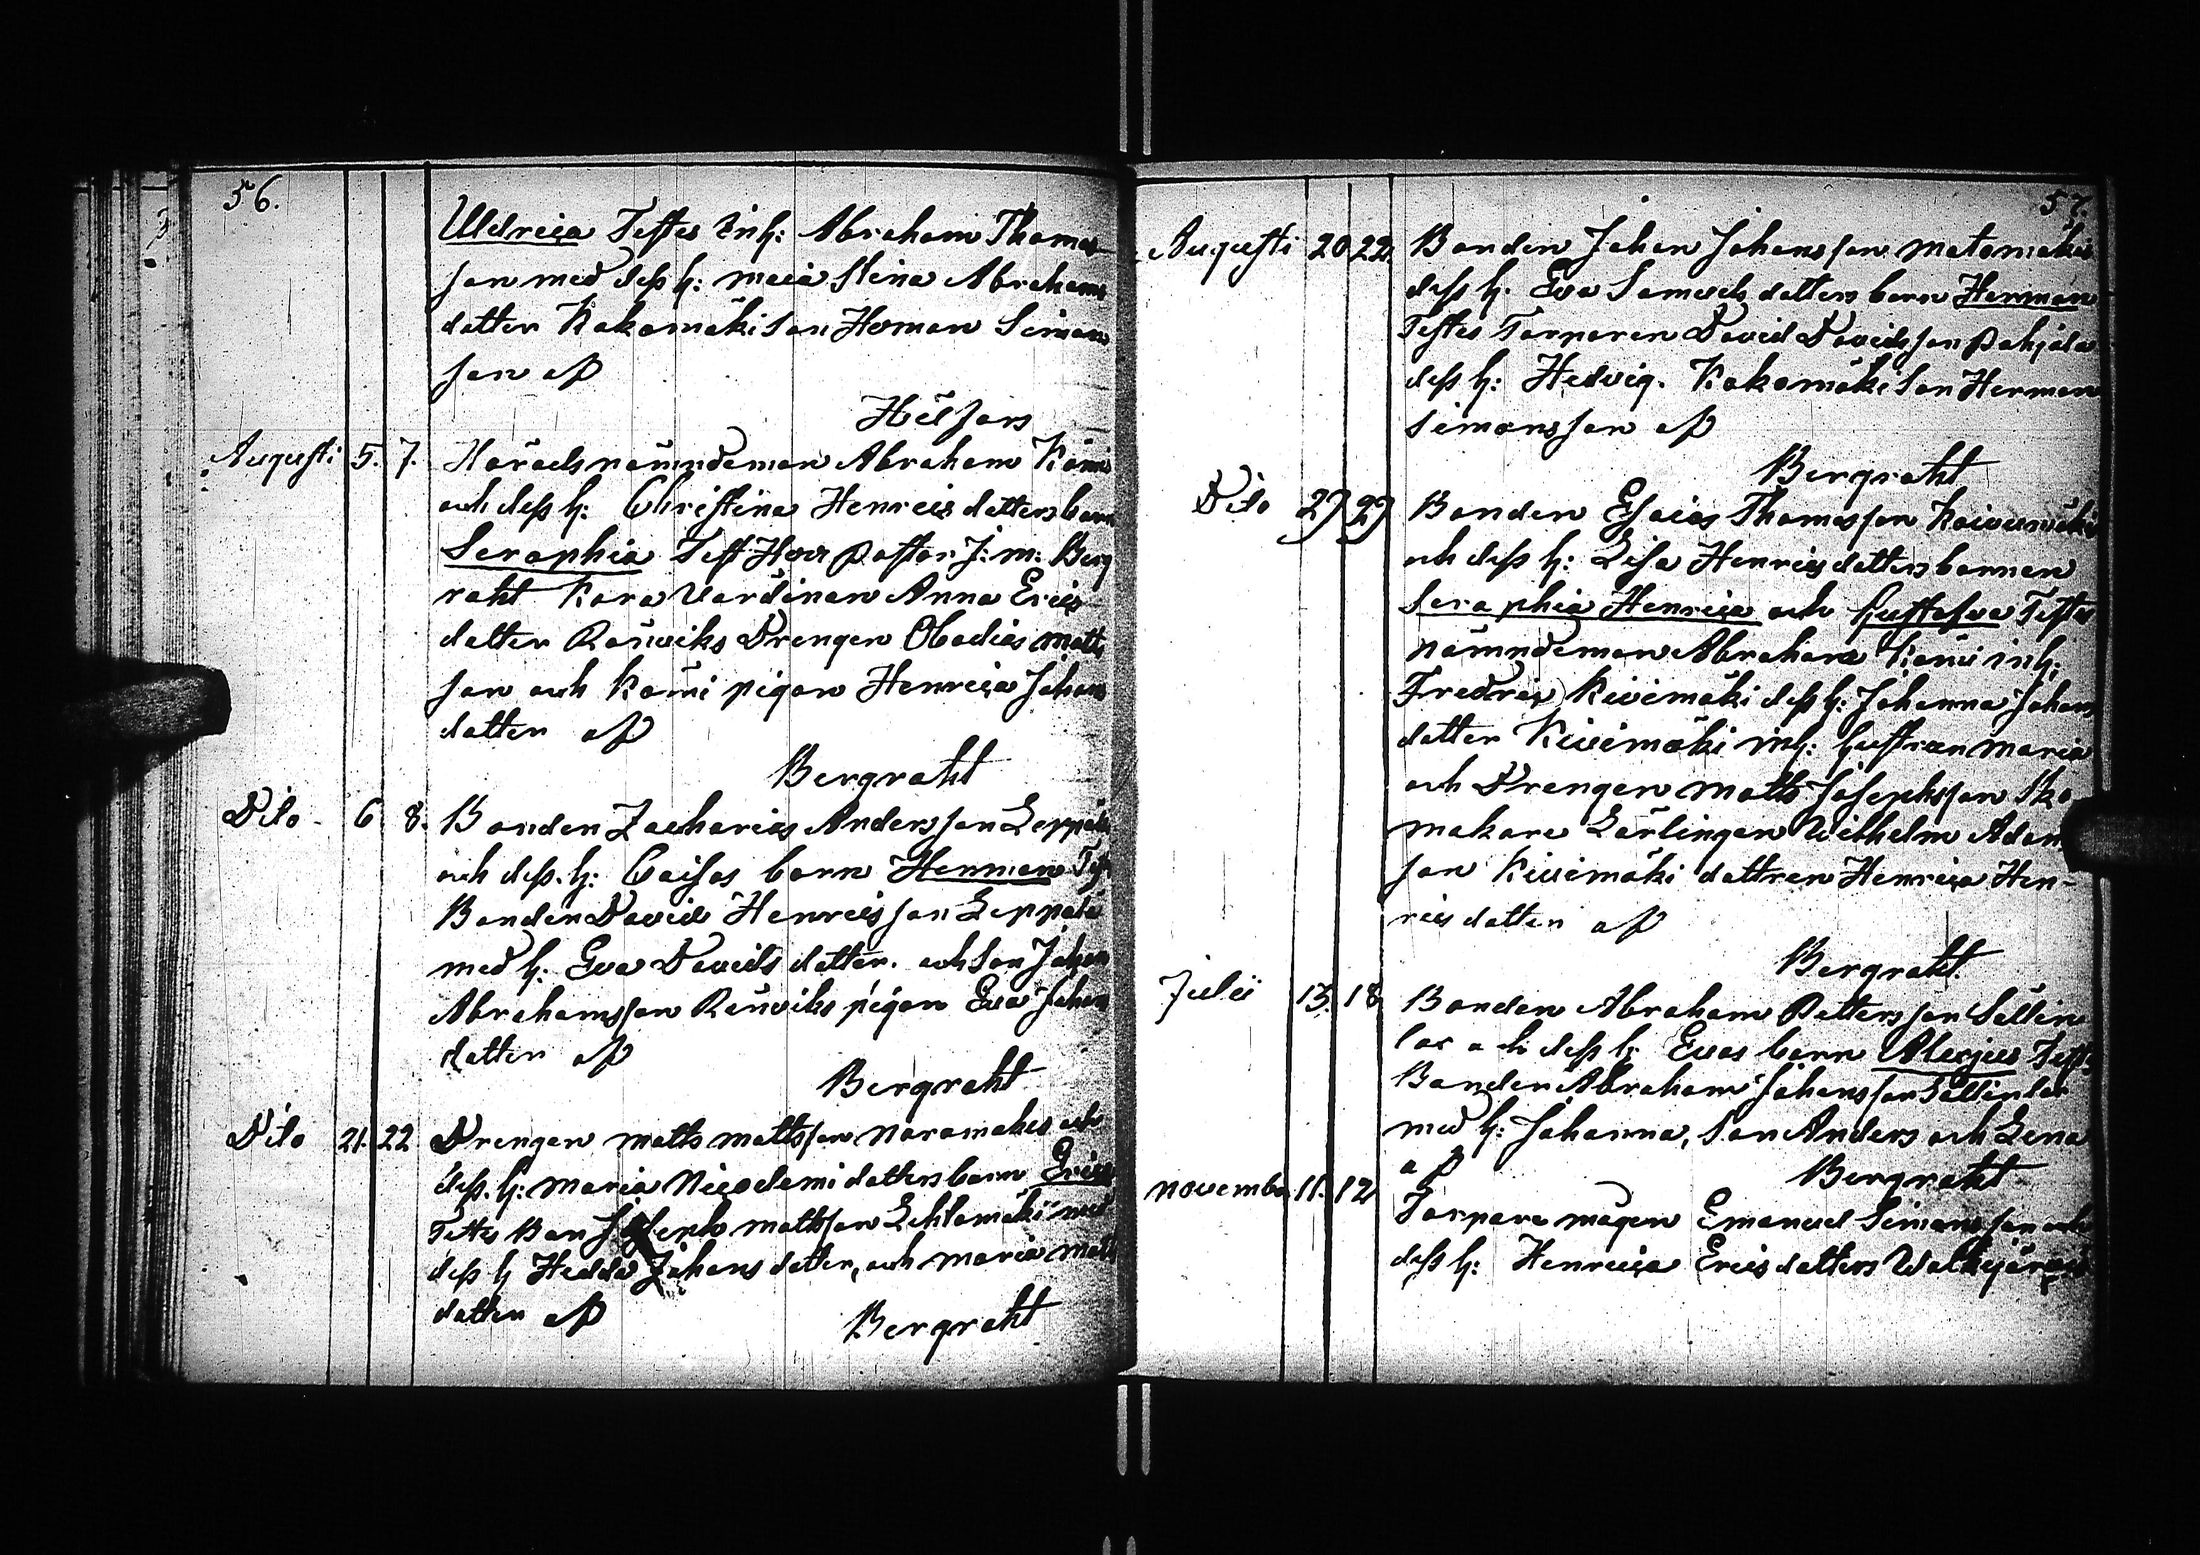 56.
Uldrica Testes Inh: Abraham Thomas
son med dess h: Maia Stina Abrahams
datter Kakomäki Son Herman Simons
son af
Heilfors
Augusti 5. 7. Häradsnämndeman Abraham Käuni
och dess h: Christina Henrics datters barn
Seraphia Test Herr Pastor J: M: Berg
roht Kara Värdinan Anna Erics
datter Rauviks Drengen Obadias Matts
son och Käuni pigan Henrica Johans
datter af
Bergroht
Dito 6 8. Bonden Zacharias Andersson Leppälä
och dess h: Caisas barn Herman Test
Bonden David Henricsson Leppälä
med h: Eva Davids datter. och Son Johan
Abrahamsson Rauviks pigan Eva Johans
datter af
Bergroht
Dito 21. 22 Drengen Matts Mattsson Naramakis och
dess h: Maria Nicodemi datters barn Erica
Testes Bon Joseph Mattsson Lehtomäki med
dess h Hedda Johans datter, och Maria Matts
datter af Bergroht
57.
Augusti 20 22 Bonden Johan Johansson Matomäki
dess h. Eva Samuels datters barn Herman
Testes Torparen David Davidsson Pohjola
dess h: Hedvig. Kakomäki Son Herman
Simonsson af
Bergroht
Dito 27 29 Bonden Esaias Thomasson Koivumäki
och dess h: Lisa Henrics datters barnen
Seraphia Henrica och Gustafva Testes
nämndeman Abraham Käuni inh:
Fredric Kivimäki dess h: Johanna Johans
datter Kivimäki inh: hustrun Maria
och Drengen Matts Josephsson Sko
makare Lärlingen Wilhelm Adam
son Kivimäki dattren Henrica Hen-
rics datter af
Bergroht
Julii 15. 18 Bonden Abraham Pettersson Sällin
lax och dess h: Evas barn Alexius Testes
Bonden Abraham Johansson Sällinlax
med h: Johanna, Son Anders och Lena
af Bergroht
November 11. 12 Torpare mågen Emanuel Simonsson och
dess h: Henrica Erics datters Walkjärvis